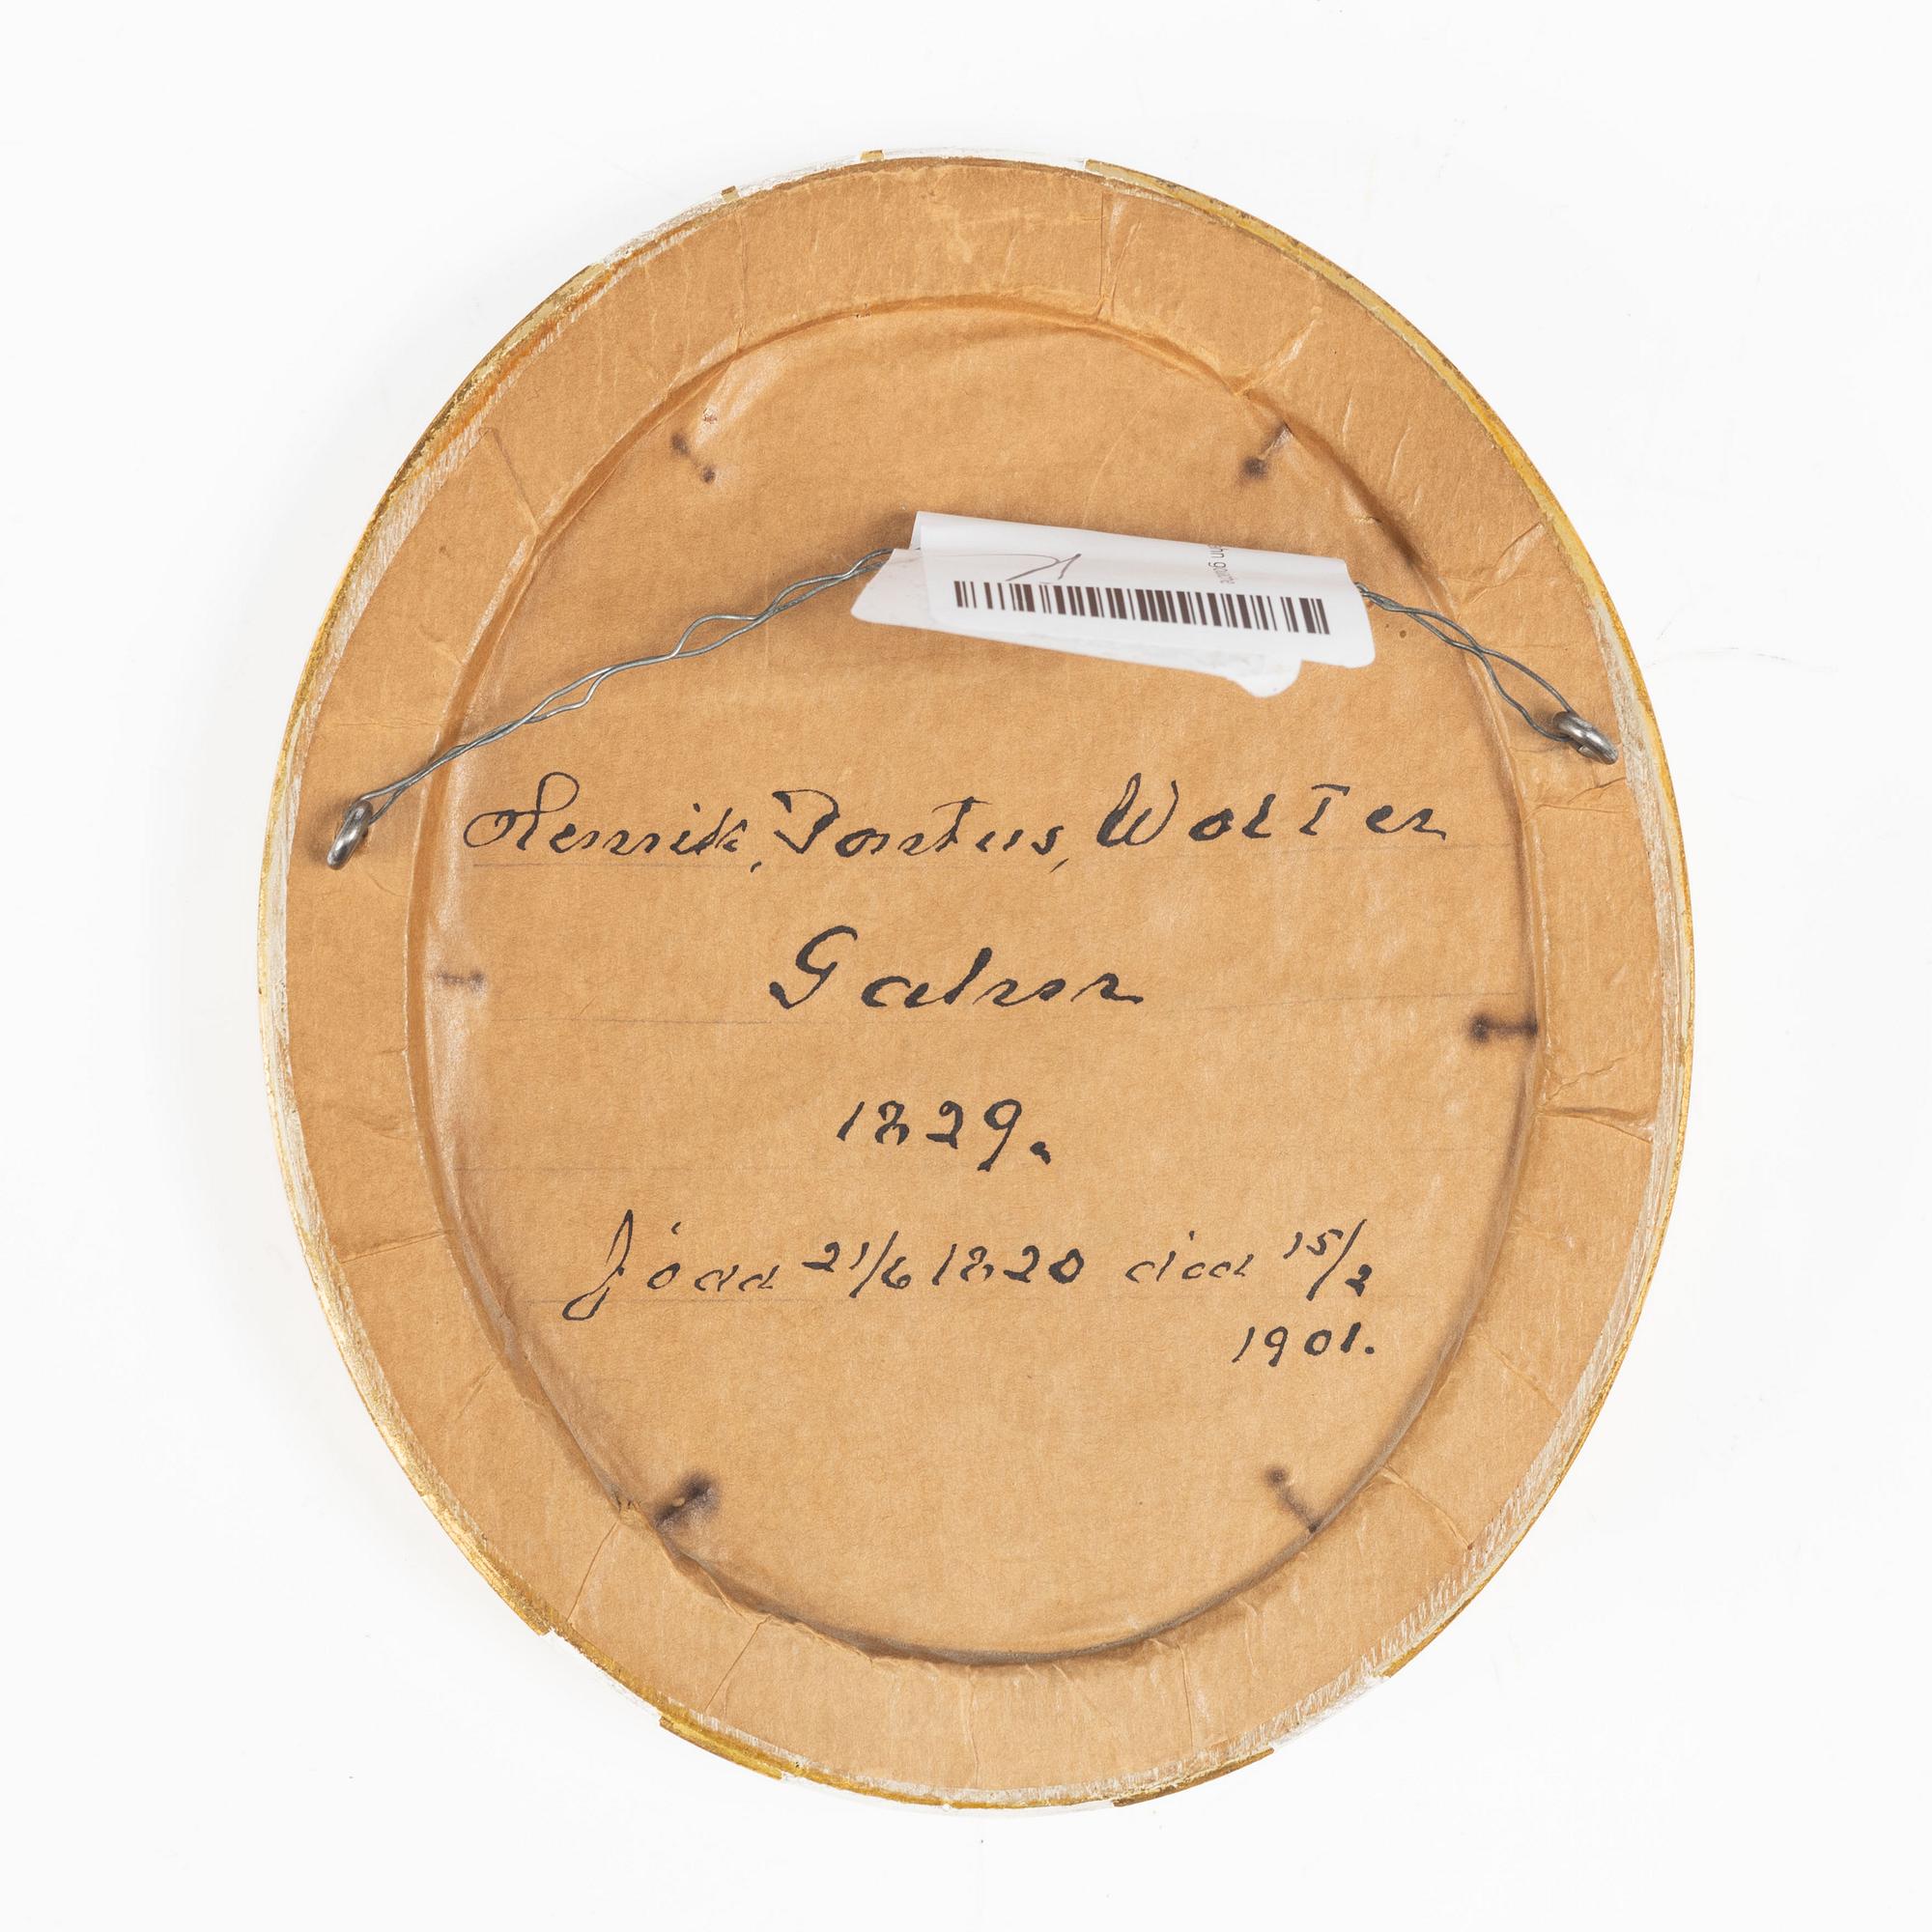 Henrik, Pontus, Wolter
Gahn
1829.
född 21/6 1820 död 15/2
1901.